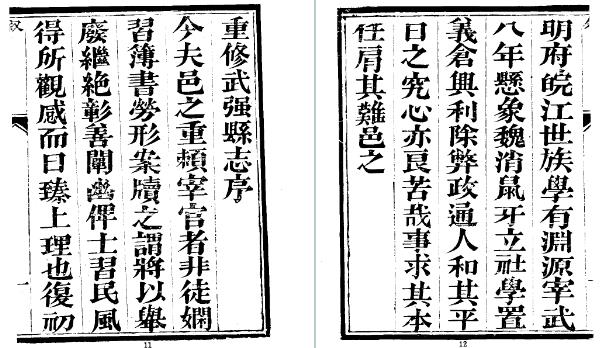 重修武强縣志序
今夫邑之重賴宰官者非徒嫻
習簿書勞形案牘之謂將以舉
廢繼絶彰善闡幽俾士習民風
得所觀感而日臻上理也復初
11
明府皖江世族學有淵源宰武
八年懸象魏消鼠牙立社學置
義倉興利除弊政通人和其平
日之究心亦良苦哉事求其本
任肩其難邑之
12